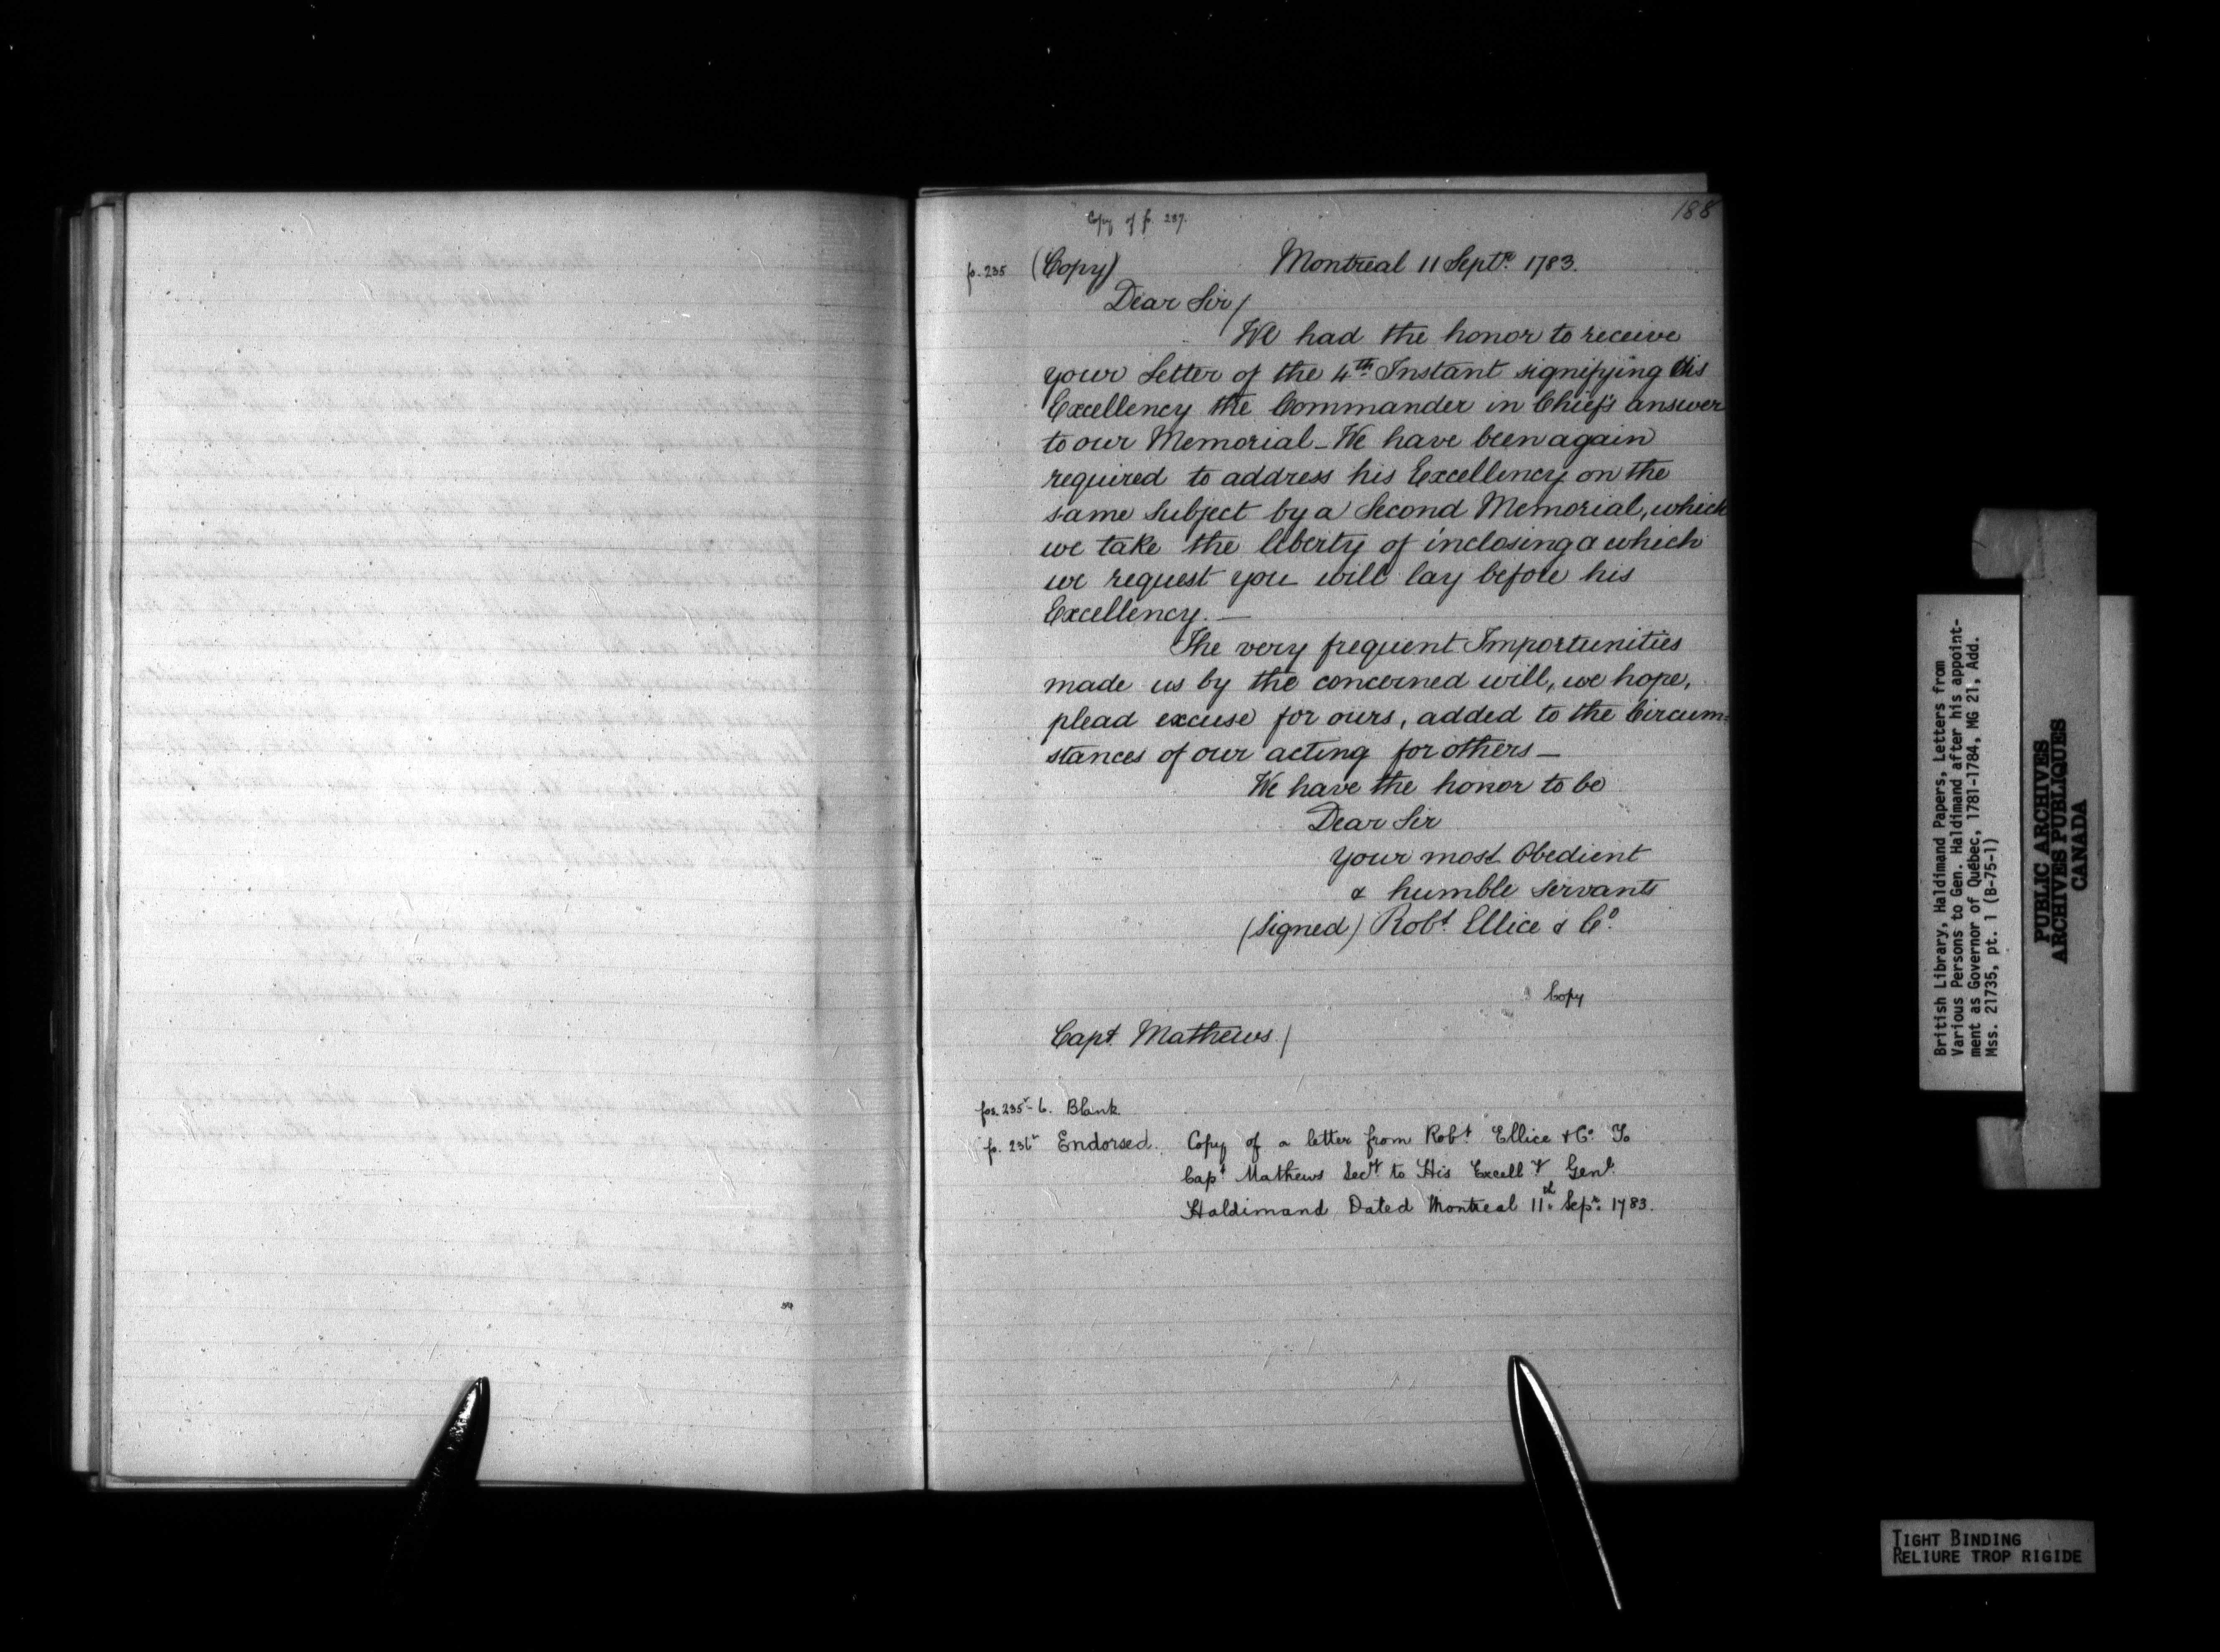 188
Copy of f. 237.
fo. 235 (Copy) Montreal 11 Septr. 1783.
Dear Sir/
We had the honor to receive
your Letter of the 4th Instant signifying His
Excellency the Commander in Chief's answer
to our Memorial_We have been again
required to address his Excellency on the
same Subject by a Second Memorial, which
we take the liberty of inclosing & which
we request you will lay before his
Excellency. —
The very frequent Importunities
made us by the concerned will, we hope,
plead excuse for ours, added to the Circum=
stances of our acting for others —
We have the honor to be
Dear Sir
Your most Obedient
& humble Servants
(Signed) Robt. Ellice & Co.
Copy
Capt. Mathews/
fos. 235v-6. Blank.
fo. 236v Endorsed. Copy of a letter from Robt. Ellice & Co. To
Capt Mathews Secry. to His Excelly. Genl.
Haldimand Dated Montreal 11th. Sepr. 1783.
British Library, Haldimand Papers, Letters from
Various Persons to Gen. Haldimand after his appoint-
ment as Governor of Québec, 1781-1784, MG 21, Add.
Mss. 21735, pt. 1 (B-75-1)
PUBLIC ARCHIVES
ARCHIVES PUBLIQUES
CANADA
TIGHT BINDING
RELIURE TROP RIGIDE